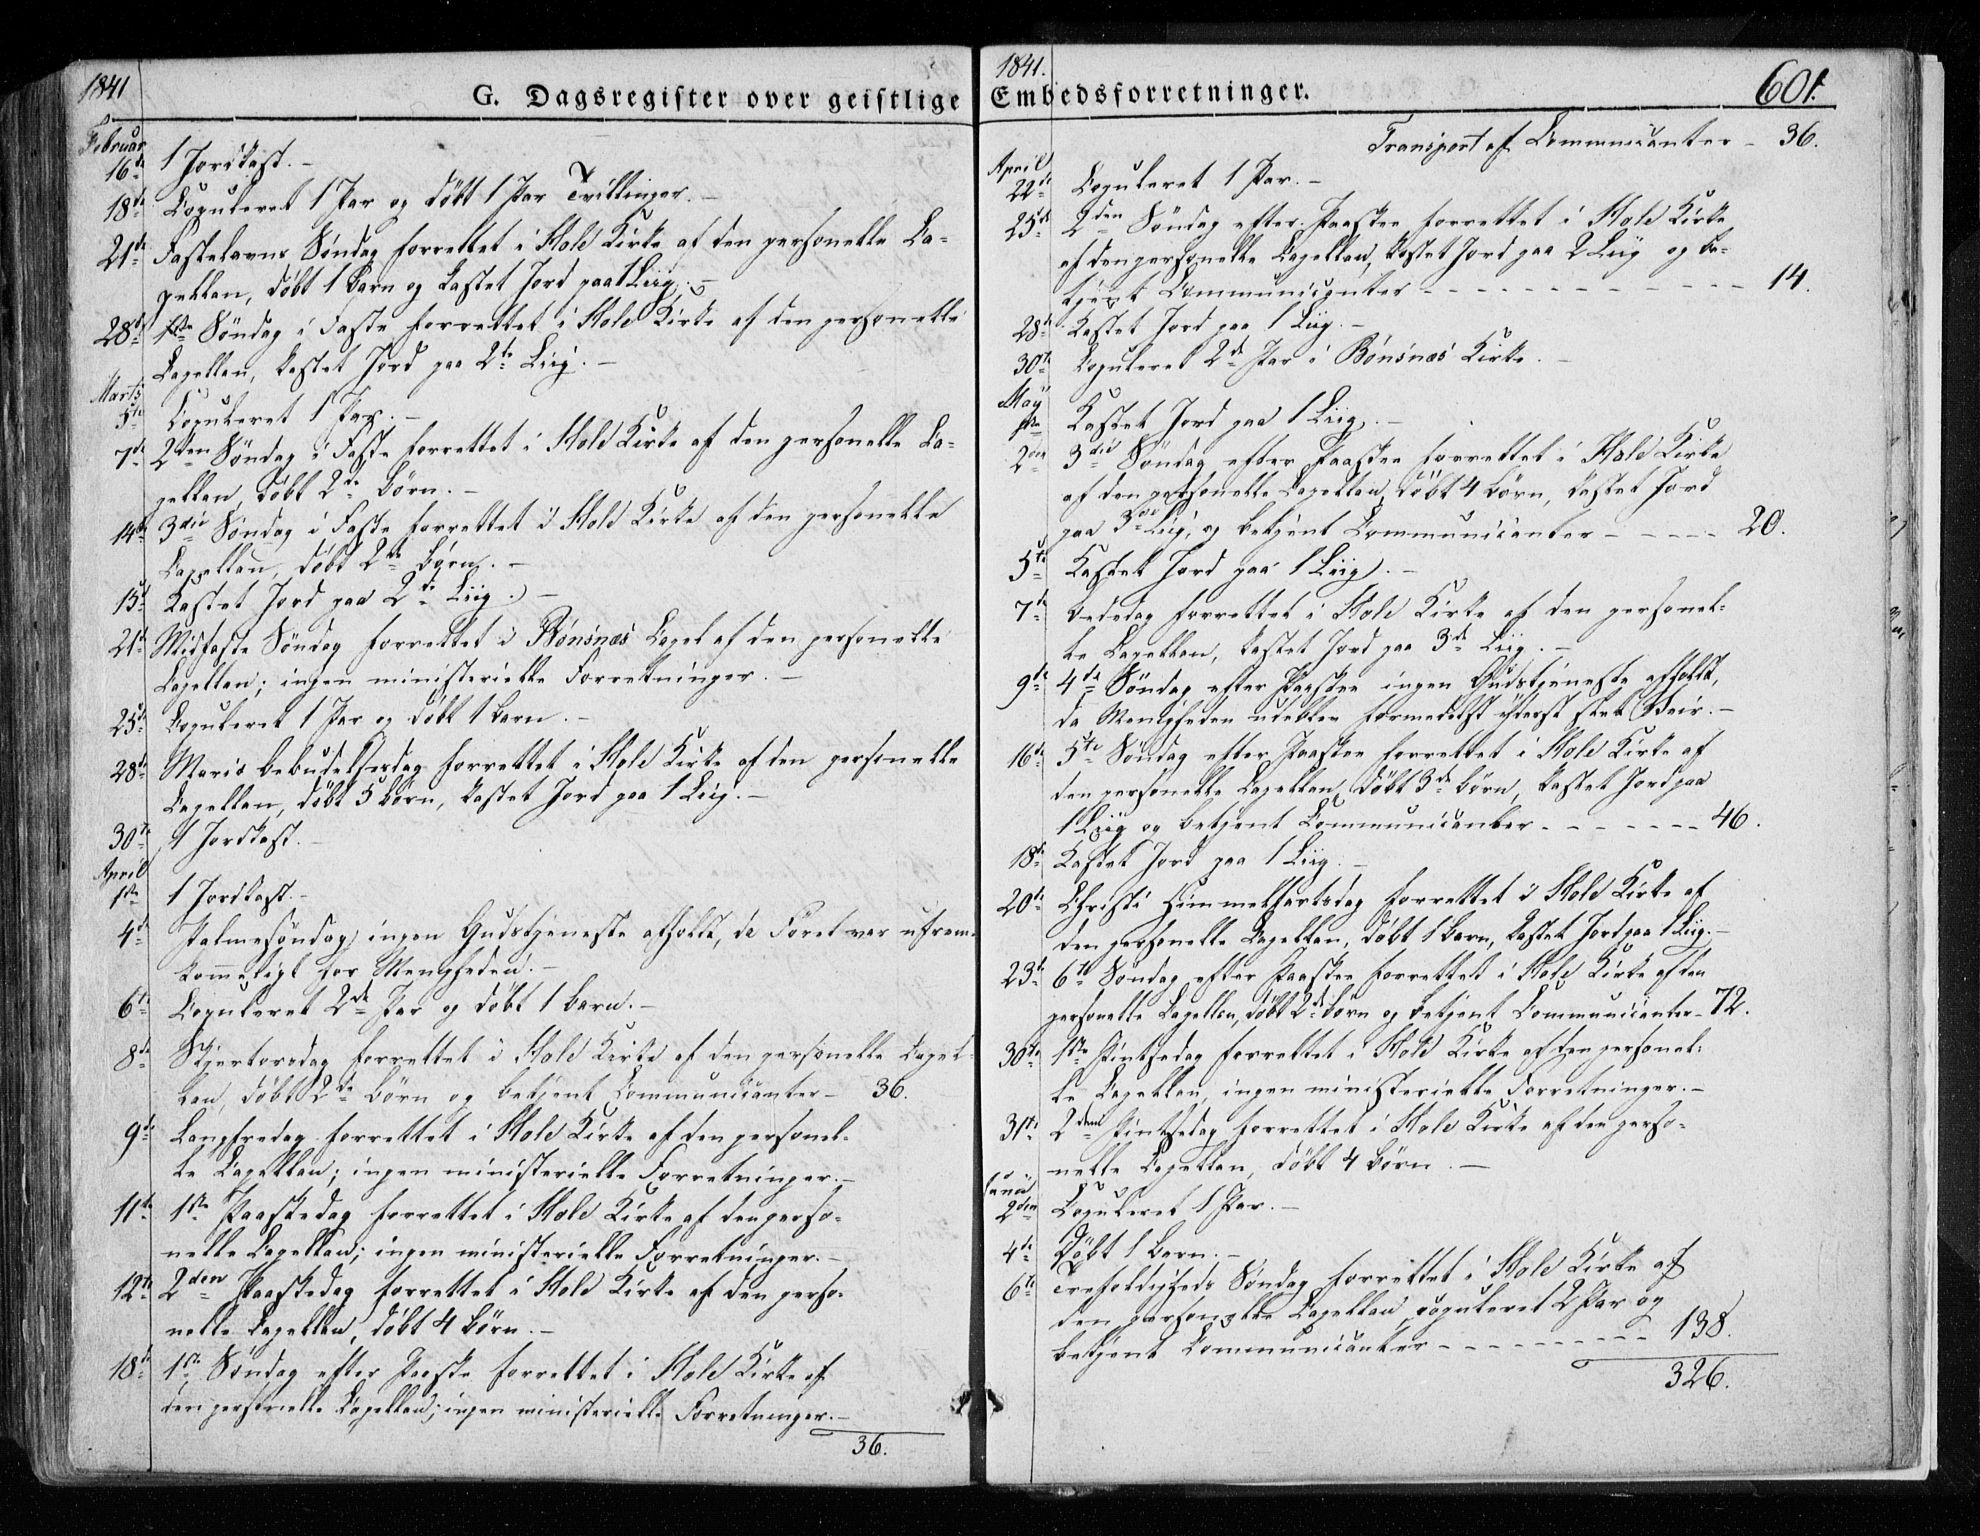 1841
G. Dagsregister over geistlige
Februar
16de 1 Jordkast. –
18de Copuleret 1 Par og døbt 1 Par Tvillinger. –
21de Fastelavns Søndag forrettet i Hole Kirke af den personelle Ca-
pellan, døbt 1 Barn og kastet Jord paa 1 Liig. –
28de 1ste Søndag i Faste forrettet i Hole Kirke af den personelle
Capellan, kastet Jord paa 2de Liig. –
Marts
5te Copuleret 1 Par. –
7de 2den Søndag i Faste forrettet i Hole Kirke af den personelle Ca-
pellan, døbt 2de Børn. –
14de 3die Søndag i Faste forrettet i Hole Kirke af den personelle
Capellan, døbt 2de Børn. –
15de Kastet Jord paa 2de Liig. –
21de Midfaste Søndag forrettet i Bønsnæs Capel af den personelle
Capellan; ingen ministerielle Forretninger. –
25de Copuleret 1 Par og døbt 1 Barn. –
28de Mariæ Bebudelsesdag forrettet i Hole Kirke af den personelle
Capellan, døbt 5 Børn, kastet Jord paa 1 Liig. –
30te 1 Jordkast. –
April
1ste 1 Jordkast. –
4de Palmesøndag ingen Gudstjeneste afholdt, da Føret var ufrem-
kommeligt for Menigheden. –
6te Copuleret 2de Par og døbt 1 Barn. –
8de Skjertorsdag forrettet i Hole Kirke af den personelle Capel-
lan, døbt 2de Børn og betjent Communicanter – 36.
9de Langfredag forrettet i Hole Kirke af den personel-
le Capellan; ingen ministerielle Forretninger. –
11te 1ste Paaskedag forrettet i Hole Kirke af den perso-
nelle Capellan; ingen ministerielle Forretninger. –
12te 2den Paaskedag forrettet i Hole Kirke af den perso-
nelle Capellan, døbt 4 Børn. –
18de 1ste Søndag efter Paaske forrettet i Hole Kirke af
den personelle Capellan; ingen ministerielle Forretninger. –
36.
1841.
Embedsforretninger.
601.
Transport af Communicanter – 36.
April
22de Copuleret 1 Par. –
25de 2den Søndag efter Paaske forrettet i Hole Kirke
af den personelle Capellan, kastet Jord paa 2 Liig og be-
tjent Communicanter – – – – – – – – – – – – 14.
28de Kastet Jord paa 1 Liig. –
30te Copuleret 2de Par i Bønsnæs Kirke. –
May
1ste Kastet Jord paa 1 Liig. –
2den 3die Søndag efter Paaske forrettet i Hole Kirke
af den personelle Capellan, døbt 4 Børn, kastet Jord
paa 3de Liig, og betjent Communicanter – – – – – 20.
5te Kastet Jord paa 1 Liig. –
7de Bededag forrettet i Hole Kirke af den personel-
le Capellan, kastet Jord paa 3de Liig. –
9de 4de Søndag efter Paaske ingen Gudstjeneste afholdt,
da Menigheden udeblev formedelst yderst slet Veir. –
16de 5te Søndag efter Paaske forrettet i Hole Kirke af
den personelle Capellan, døbt 3de Børn, kastet Jord paa
1 Liig og betjent Communicanter – – – – – – – 46.
18de Kastet Jord paa 1 Liig. –
20de Christi Himmelfartsdag forrettet i Hole Kirke af
den personelle Capellan, døbt 1 Barn, kastet Jord paa 1 Liig. –
23de 6te Søndag efter Paaske forrettet i Hole Kirke af den
personelle Capellan, døbt 2de Børn og betjent Communicanter – 72.
30te 1ste Pintsedag forrettet i Hole Kirke af den personel-
le Capellan, ingen ministerielle Forretninger. –
31te 2den Pintsedag forrettet i Hole Kirke af den perso-
nelle Capellan, døbt 4 Børn. –
Junii
2den Copuleret 1 Par. –
4de Døbt 1 Barn. –
6te Trefoldigheds Søndag forrettet i Hole Kirke af
den personelle Capellan, copuleret 2 Par og
betjent Communicanter – – – – – – – – – 138.
326.